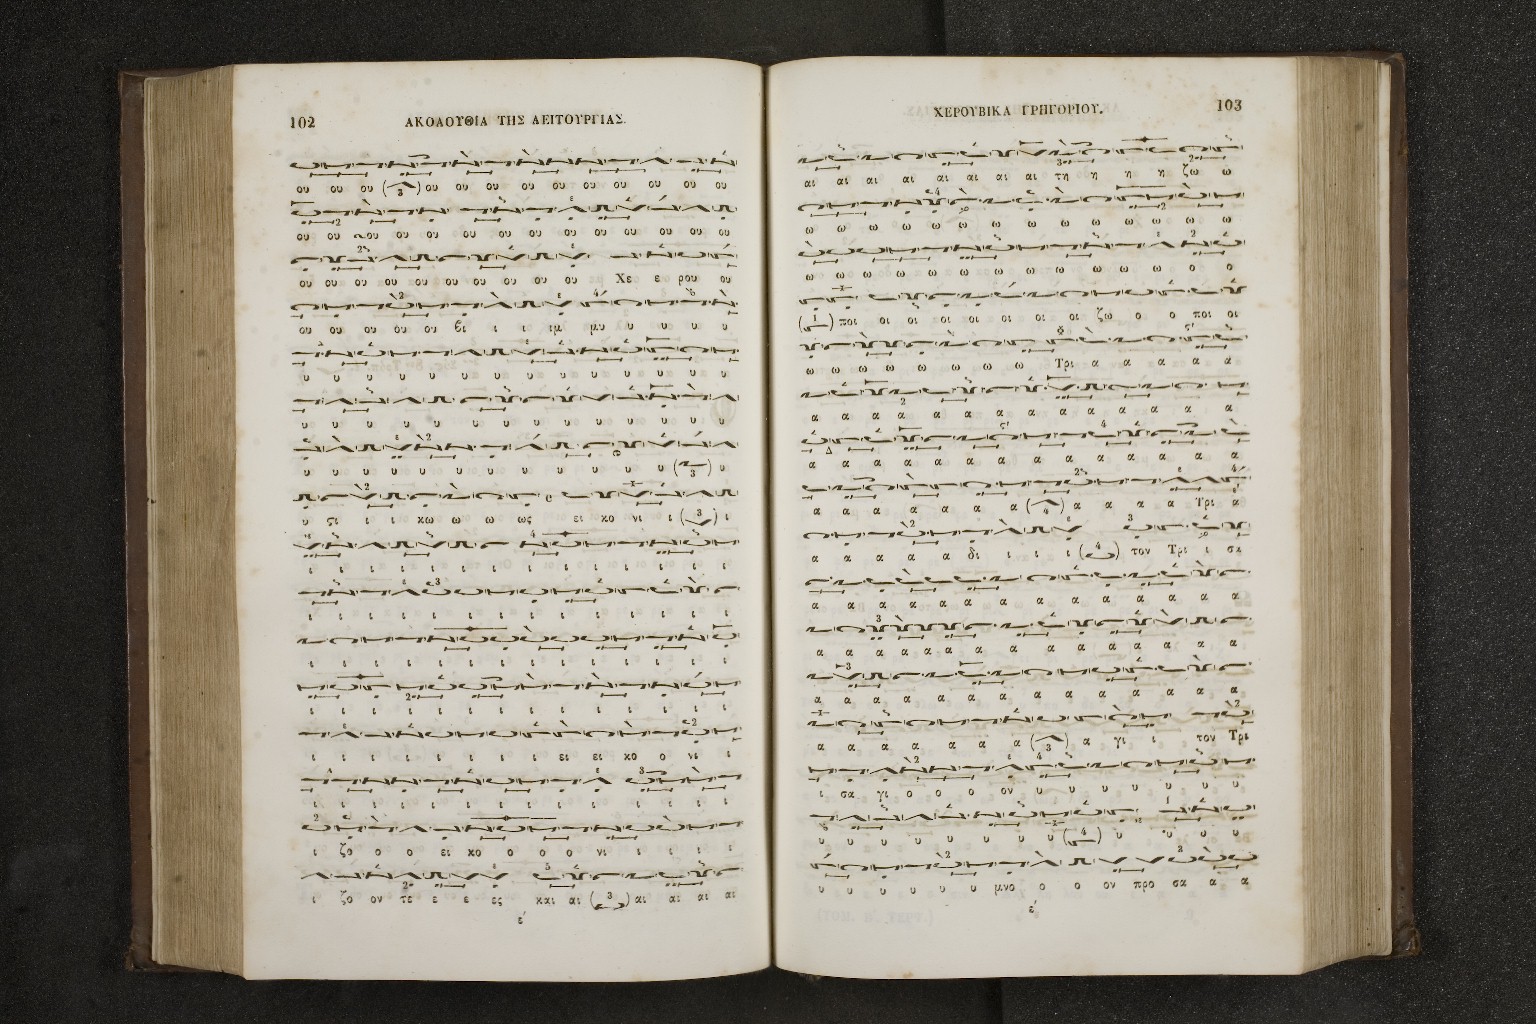 102
ΑΚΟΛΟΥΘΙΑ ΤΗΣ ΛΕΙΤΟΥΡΓΙΑΣ.
ου ου ου (3) ου ου ου ου ου ου ου ου ου ου
ου ου ου ου ου ου ου ου ου ου ου ου ου ου
ου ου ου ου ου ου ου ου ου ου Χε ε ρου ου
ου ου ου ου ου βι ι ι ιμ μυ υ υ υ υ
υ υ υ υ υ υ υ υ υ υ υ υ υ υ
υ υ υ υ υ υ υ υ υ υ υ υ υ υ
υ υ υ υ υ υ υ υ υ υ υ υ υ (3) υ
υ ςι ι ι κω ω ω ως ει κο νι ι (3) ι
ι ι ι ι ι ι ι ι ι ι ι ι ι ι
ι ι ι ι ι ι ι ι ι ι ι ι ι ι
ι ι ι ι ι ι ι ι ι ι ι ι ι ι
ι ι ι ι ι ι ι ι ι ι ι ι ι ι
ι ι ι ι ι ι ι ι ει ει κο ο νι ι
ι ι ι ι ι ι ι ι ι ι ι ι ι ι
ι ζο ο ο ει κο ο ο ο νι ι ι ι ι
ι ζο ον τε ε ε ες και αι (3) αι αι αι αι
ε΄
103
ΧΕΡΟΥΒΙΚΑ ΓΡΗΓΟΡΙΟΥ.
αι αι αι αι αι αι αι αι τη η η η ζω ω
ω ω ω ω ω ω ω ω ω ω ω ω ω ω
ω ω ω ω ω ω ω ω ω ω ω ω ο ο
(1) ποι οι οι οι οι οι οι οι ζω ο ο ποι οι
ω ω ω ω ω ω ω ω Τρι α α α α α
α α α α α α α α α α α α α α
α α α α α α α α α α α α α α
α α α α α α α (4) α α α α Τρι α
α α α α α δι ι ι ι (4) τον Τρι ι σα
α α α α α α α α α α α α α α
α α α α α α α α α α α α α α α
α α α α α α α α α α α α α α
α α α α α α α (3) α γι ι τον Τρι
ι σα γι ο ο ο ον υ υ υ υ υ υ υ
υ υ υ υ υ υ υ υ (4) υ υ υ υ υ
υ υ υ υ υ υ μνο ο ο ον προ σα α α
ε΄